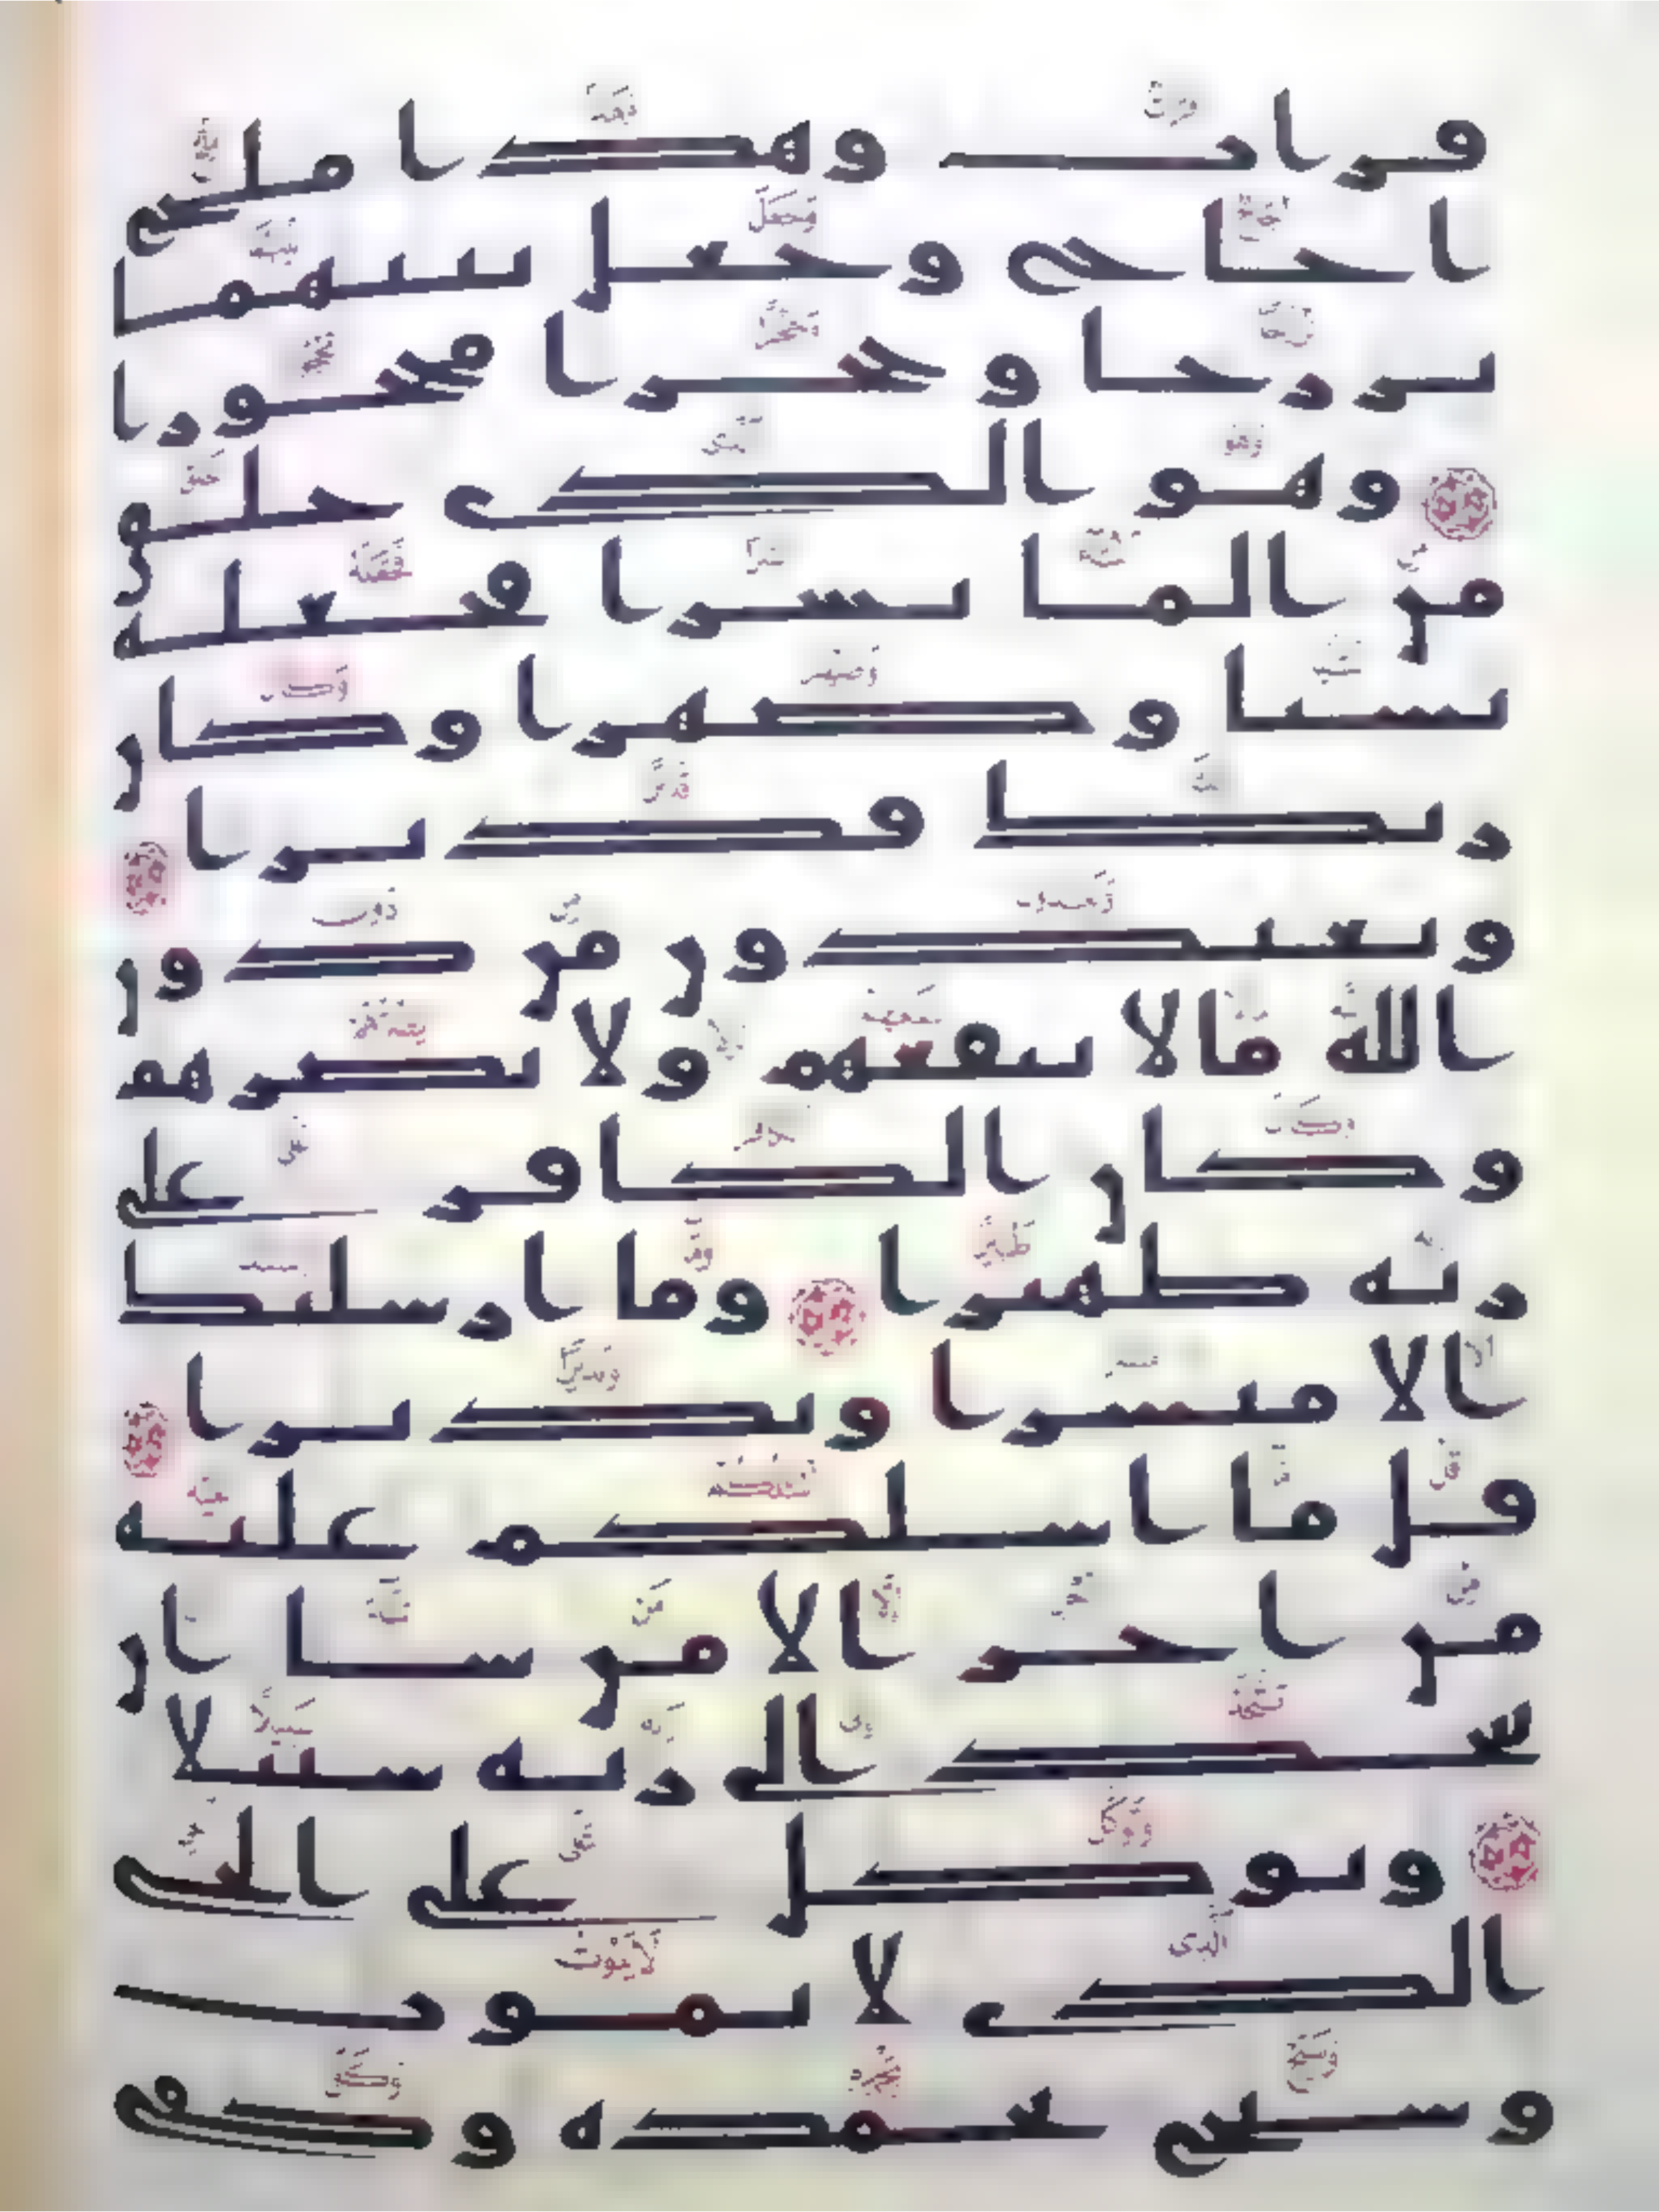 فرات وهذا ملح
اجاج وجعل بينهما
برزخا وحجرا محجورا
وهو الذى خلق
من الما بشرا فجعله
نسبا وصهرا وكان
ربك قديرا
ويعبدون من دون
الله ما لا ينفعهم ولا يضرهم
وكان الكافر على
ربه ظهيرا وما ارسلنك
الا مبشرا ونذيرا
قل ما اسلكم عليه
من اجر الا من شا ان
يتخذ الى ربه سبيلا
وتوكل على الحى
الذى لا يموت
وسبح بحمده وكفى